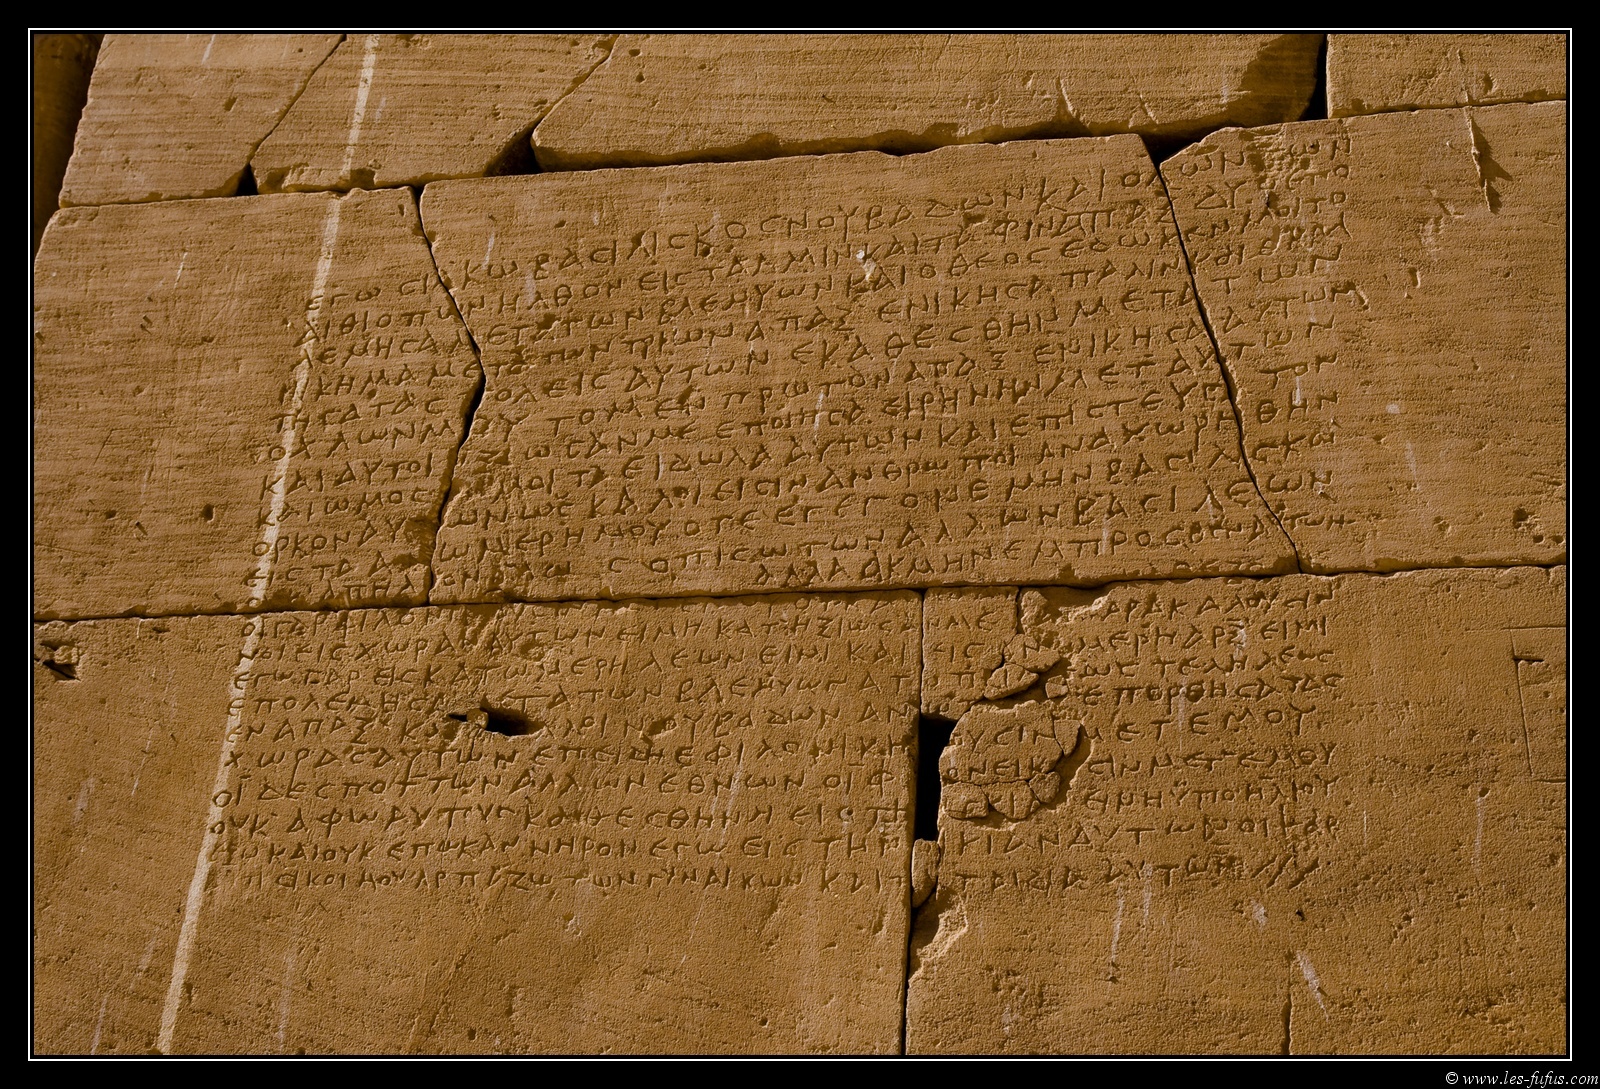 ΕΓΩ ΣΙΛΚΩ ΒΑΣΙΛΙΣΚΟΣ ΝΟΥΒΑΔΩΝ ΚΑΙ ΟΛΩΝ ΤΩΝ
ΑΙΘΙΟΠΩΝ ΗΛΘΟΝ ΕΙΣ ΤΑΛΜΙΝ ΚΑΙ ΤΑΦΙΝ ΑΠΑΞ ΔΥΟ ΕΠΟ
ΛΕΜΗΣΑ ΜΕΤΑ ΤΩΝ ΒΛΕΜΥΩΝ ΚΑΙ Ο ΘΕΟΣ ΕΔΩΚΕΝ ΜΟΙ ΤΟ
ΝΙΚΗΜΑ ΜΕΤΑ ΤΩΝ ΤΡΙΩΝ ΑΠΑΞ ΕΝΙΚΗΣΑ ΠΑΛΙΝ ΚΑΙ ΕΚΡΑ
ΤΗΣΑ ΤΑΣ ΠΟΛΕΙΣ ΑΥΤΩΝ ΕΚΑΘΕΣΘΗΝ ΜΕΤΑ ΤΩΝ
ΟΧΛΩΝ ΜΟΥ ΤΟ ΜΕΝ ΠΡΩΤΟΝ ΑΠΑΞ ΕΝΙΚΗΣΑ ΑΥΤΩΝ
ΚΑΙ ΑΥΤΟΙ ΗΞΙΩΣΑΝ ΜΕ ΕΠΟΙΗΣΑ ΕΙΡΗΝΗΝ ΜΕΤ ΑΥΤΩΝ
ΚΑΙ ΩΜΟΣΑΝ ΜΟΙ ΤΑ ΕΙΔΩΛΑ ΑΥΤΩΝ ΚΑΙ ΕΠΙΣΤΕΥΣΑ ΤΟΝ
ΟΡΚΟΝ ΑΥΤΩΝ ΩΣ ΚΑΛΟΙ ΕΙΣΙΝ ΑΝΘΡΩΠΟΙ ΑΝΑΧΩΡΗΘΗΝ
ΕΙΣ ΤΑ ΑΝΩ ΜΕΡΗ ΜΟΥ ΟΤΕ ΕΓΕΓΟΝΕΜΗΝ ΒΑΣΙΛΙΣΚΟΣ
ΑΠΗΛΘΟΝ ΟΛΩΣ ΟΠΙΣΩ ΤΩΝ ΑΛΛΩΝ ΒΑΣΙΛΕΩΝ
ΑΛΛΑ ΑΚΜΗΝ ΕΜΠΡΟΣΘΕΝ ΑΥΤΩΝ
ΟΙ ΓΑΡ ΦΙΛΟΝ
ΕΙΣ ΧΩΡΑΝ ΑΥΤΩΝ ΕΙ ΜΗ ΚΑΤΗΞΙΩΣΑΝ ΜΕ ΠΑΡΑΚΑΛΟΥΣΙΝ
ΕΓΩ ΓΑΡ ΕΙΣ ΚΑΤΩ ΜΕΡΗ ΛΕΩΝ ΕΙΜΙ ΚΑΙ ΕΙΣ ΑΝΩ ΜΕΡΗ ΑΡΞ ΕΙΜΙ
ΕΠΟΛΕΜΗΣΑ ΜΕΤΑ ΤΩΝ ΒΛΕΜΥΩΝ ΑΠΟ ΠΡΙΜ ΕΩΣ ΤΕΛΗΛΕΩΣ
ΕΝ ΑΠΑΞ ΚΑΙ ΟΙ ΑΛΛΟΙ ΝΟΥΒΑΔΩΝ ΑΝΩΤΕΡΩ ΕΠΟΡΘΗΣΑ ΤΑΣ
ΧΩΡΑΣ ΑΥΤΩΝ ΕΠΕΙΔΗ ΕΦΙΛΟΝΙΚΗΣΟΥΣΙΝ ΜΕΤ ΕΜΟΥ
ΟΪ ΔΕΣΠΟΤ ΤΩΝ ΑΛΛΩΝ ΕΘΝΩΝ ΟΪ ΦΙΛΟΝΕΙΚΟΥΣΙΝ ΜΕΤ ΕΜΟΥ
ΟΥΚ ΑΦΩ ΑΥΤΟΥΣ ΚΑΘΕΣΘΗΝΑΙ ΕΙΣ ΤΗΝ ΣΚΙΑΝ ΕΙ ΜΗ ΫΠΟ ΗΛΙΟΥ
ΕΞΩ ΚΑΙ ΟΥΚ ΕΠΩΚΑΝ ΝΗΡΟΝ ΕΣΩ ΕΙΣ ΤΗΝ ΟΙΚΙΑΝ ΑΥΤΩΝ ΟΙ ΓΑΡ
ΑΝΤΙΔΙΚΟΙ ΜΟΥ ΑΡΠΑΖΩ ΤΩΝ ΓΥΝΑΙΚΩΝ ΚΑΙ ΤΑ ΠΑΙΔΙΑ ΑΥΤΩΝ
© www.les-fufus.com